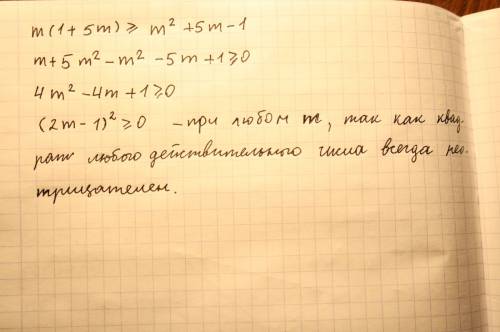 m(1+5m) ⩾ m² +5m-1
m+5m²-m² -5m+1⩾0
4m² -4m+1⩾0
(2m-1)² ⩾0 -при любом m, так как квад-
рат любого действительного числа всегда нео-
трицателен.